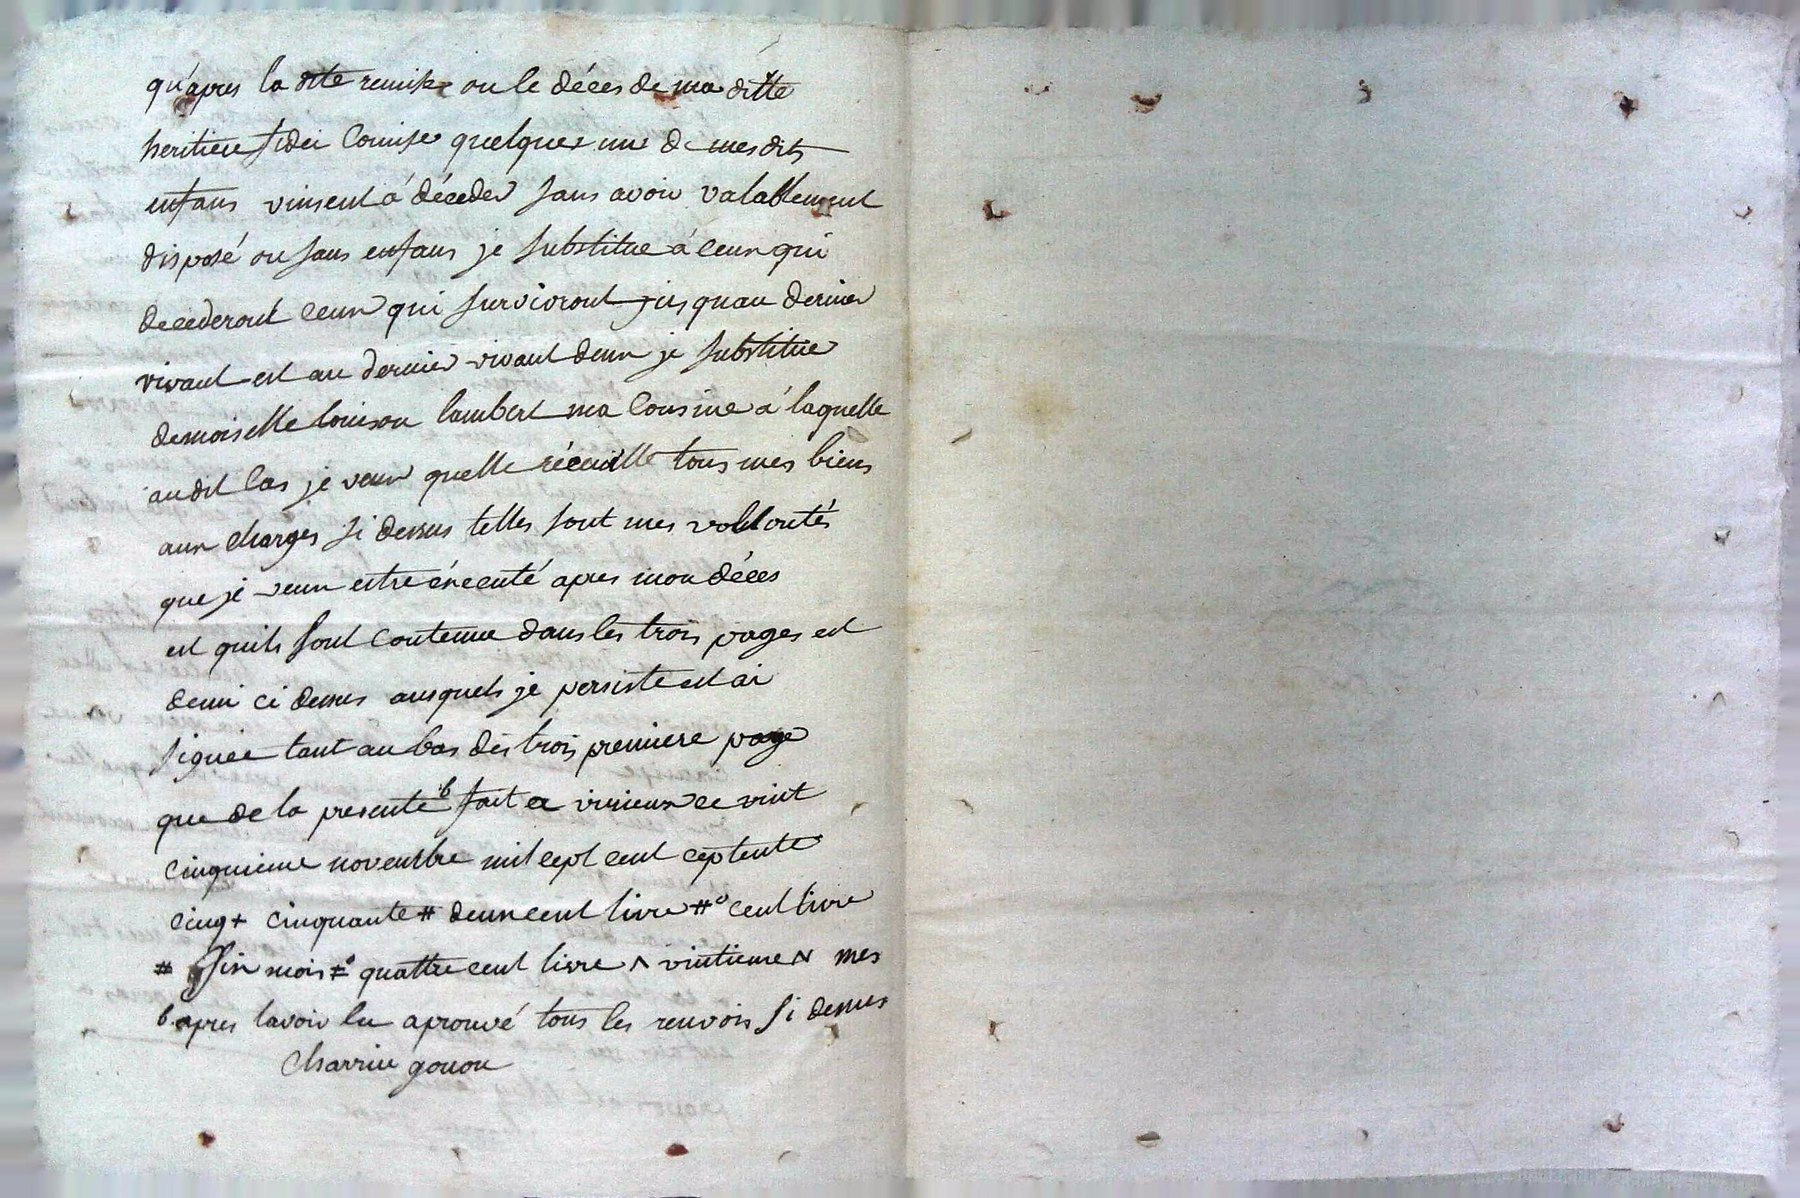 qu'apres la dite remise ou le déces de ma ditte
heritiere fidei comise quelques uns de mes dits
enfans vinsent á déceder sans avoir valablement
disposé ou sans enfans je substitue á ceux qui
decederont ceux qui survivront jusquau dernier
vivant est au dernier vivant deux je substitue
demoiselle louison lambert ma cousine á laquelle
au dit cas je veux quelle récuille tous mes biens
aux charges si dessus telles sont mes volontés
que je veux estre éxecuté apres mon déces
est quils sont contenue dans les trois pages est
demi ci dessus ausquels je persiste est ai
signée tant au bas des trois premiere page
que de la presente b fait a virieux ce vint
cinquieme novembre mil cept cent ceptente
cinq + cinquante # deux cent livre #° cent livre
# six mois ‡° quattre cent livre ^ vintieme N mes
b. apres lavoir lu aprouvé tous les renvois si dessus
Charrin gonon